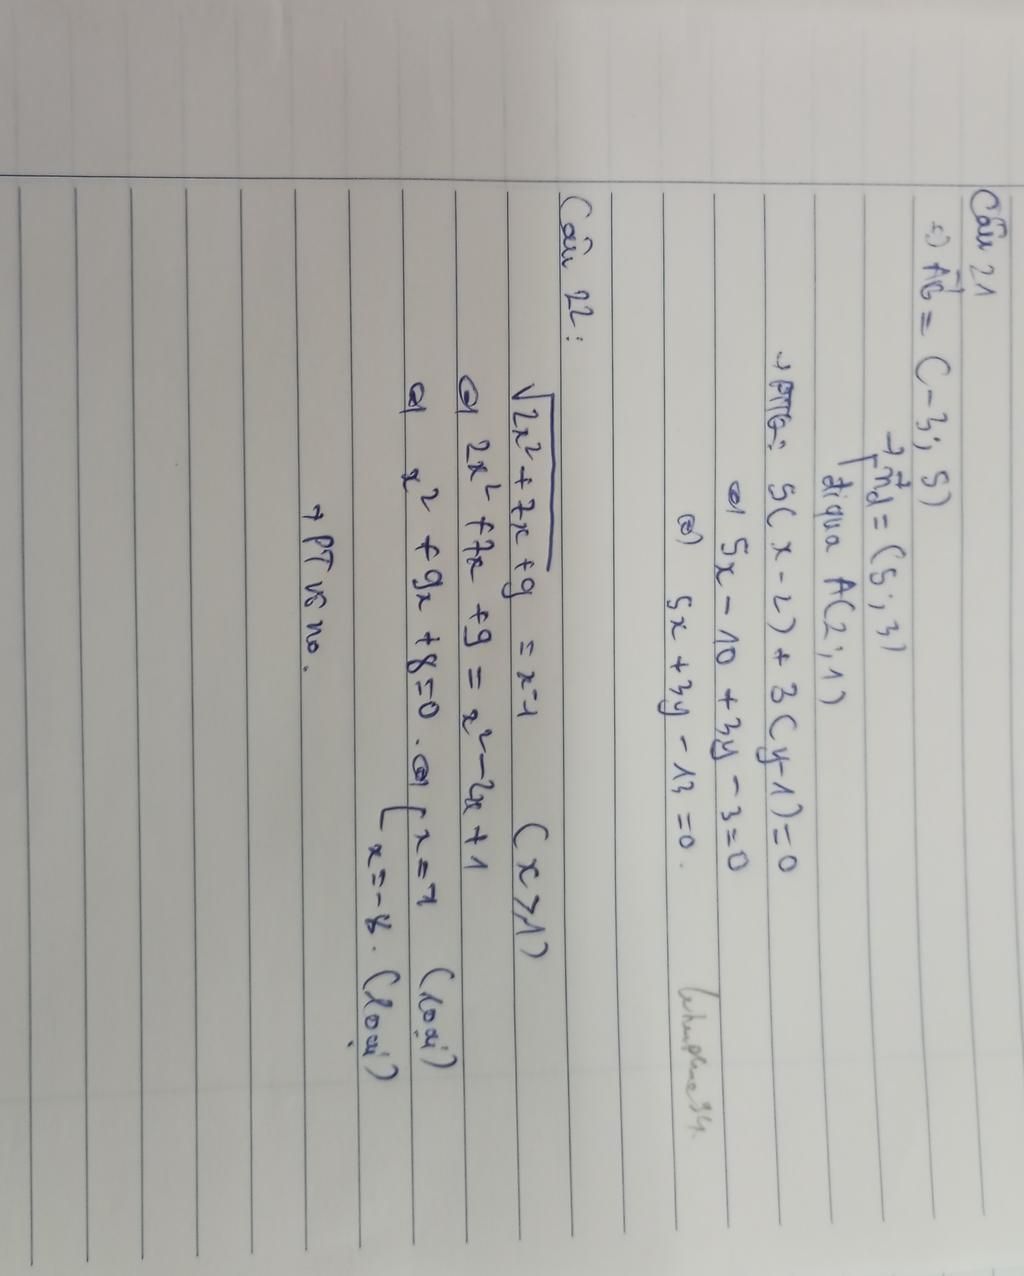 Câu 21
=) AB = (-3; 5)
→ nd = (5; 3)
đi qua A(2; 1)
→ PTTQ: 5(x-2) + 3(y-1)=0
<=> 5x - 10 + 3y - 3=0
<=> 5x + 3y - 13 =0.
Câu 22:
√2x² + 7x + 9 = x-1 (x > 1)
<=> 2x² + 7x + 9 = x² - 2x + 1
<=> x² + 9x + 8=0. <=> [ x = -1 (loại)
x = -8. (loại)
→ PT vô no.